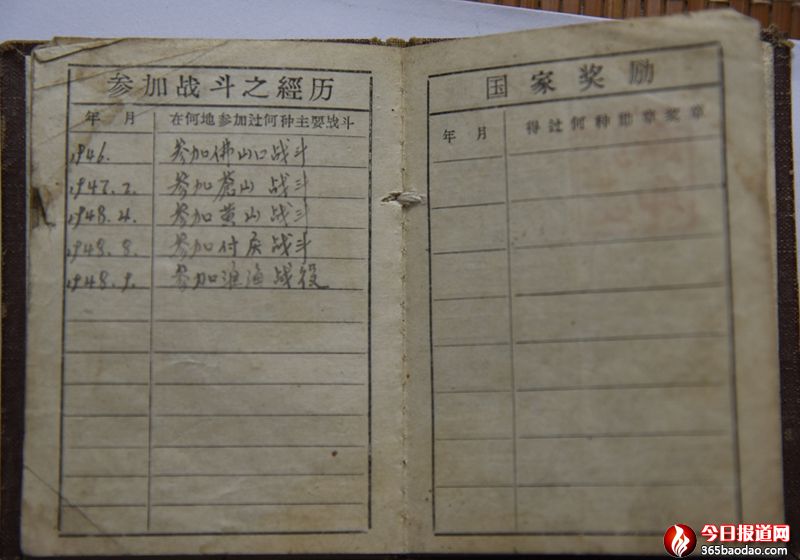 参加战斗之經历
年 月 在何地参加过何种主要战斗
1946. 参加佛山口战斗
1947.2. 参加苍山战斗
1948.4. 参加黄山战斗
1948.8. 参加付庄战斗
1948.9. 参加淮海战役
国家奖励
年 月 得过何种勋章奖章
今日报道网
365baodao.com